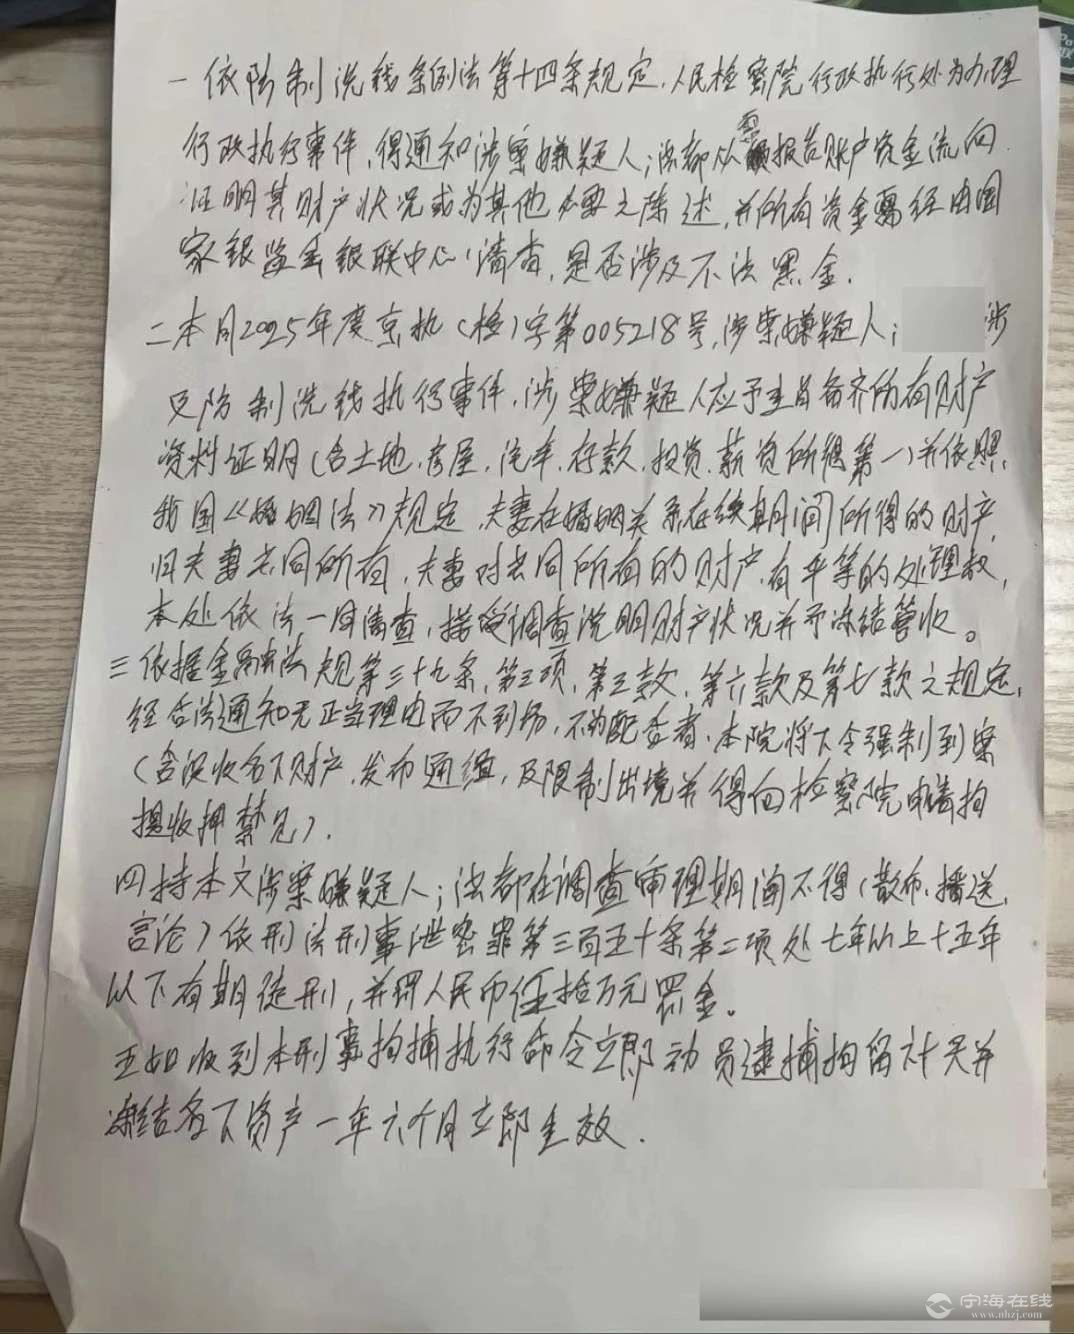 一依防制洗钱条例法第十四条规定,人民检察院行政执行处为办理
行政执行事件,得通知涉案嫌疑人;
需报告账户资金流向
证明其财产状况或为其他必要之陈述,并所有资金需经由国
家银监至银联中心清查,是否涉及不法黑金.
二本月2025年度京执(检)字第005218号,涉案嫌疑人;涉
及防制洗钱执行事件,涉案嫌疑人应予主自备齐所有财产
资料证明(含土地,房屋,汽车,存款,投资,薪资所得第一)并依照
我国《婚姻法》规定,夫妻在婚姻关系存续期间所得的财产,
归夫妻共同所有,夫妻对共同所有的财产,有平等的处理权,
本处依法一同清查,接受调查说明财产状况并予冻结管收。
三依据金融法规第三十九条,第三项,第五款,第六款及第七款之规定,
经合法通知无正当理由而不到场,不配合者,本院将下令强制到案
(含没收名下财产,发布通缉,及限制出境并得向检察院申请拘
提收押禁见).
四持本文涉案嫌疑人;在调查审理期间不得(散布,播送,
言论)依刑法刑事泄密罪第三百五十条第二项处七年以上十五年
以下有期徒刑,并罚人民币伍拾万元罚金。
五如收到本刑事拘捕执行命令立即动员逮捕拘留 天并
冻结名下资产一年六个月立即生效.
宁海在线
www.nhzj.com